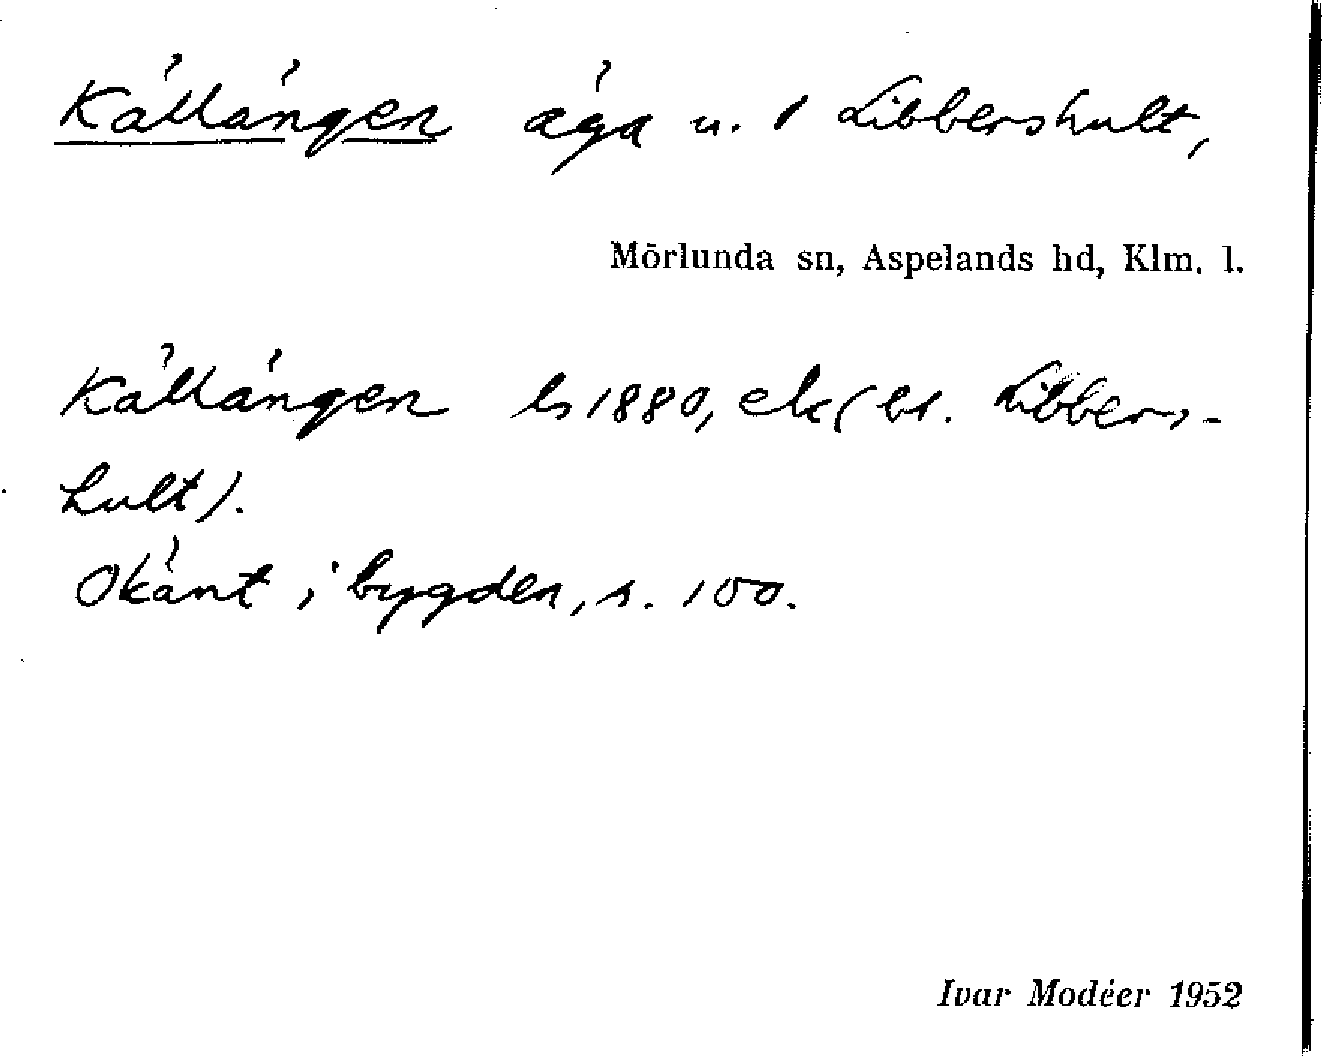 Källängen äga u. 1 Libbershult,
Mörlunda sn, Aspelands hd, Klm. l.
Källängen ls 1880, ek (bl. Libbers-
hult).
Okänt i bygden, s. 100.
Ivar Modéer 1952